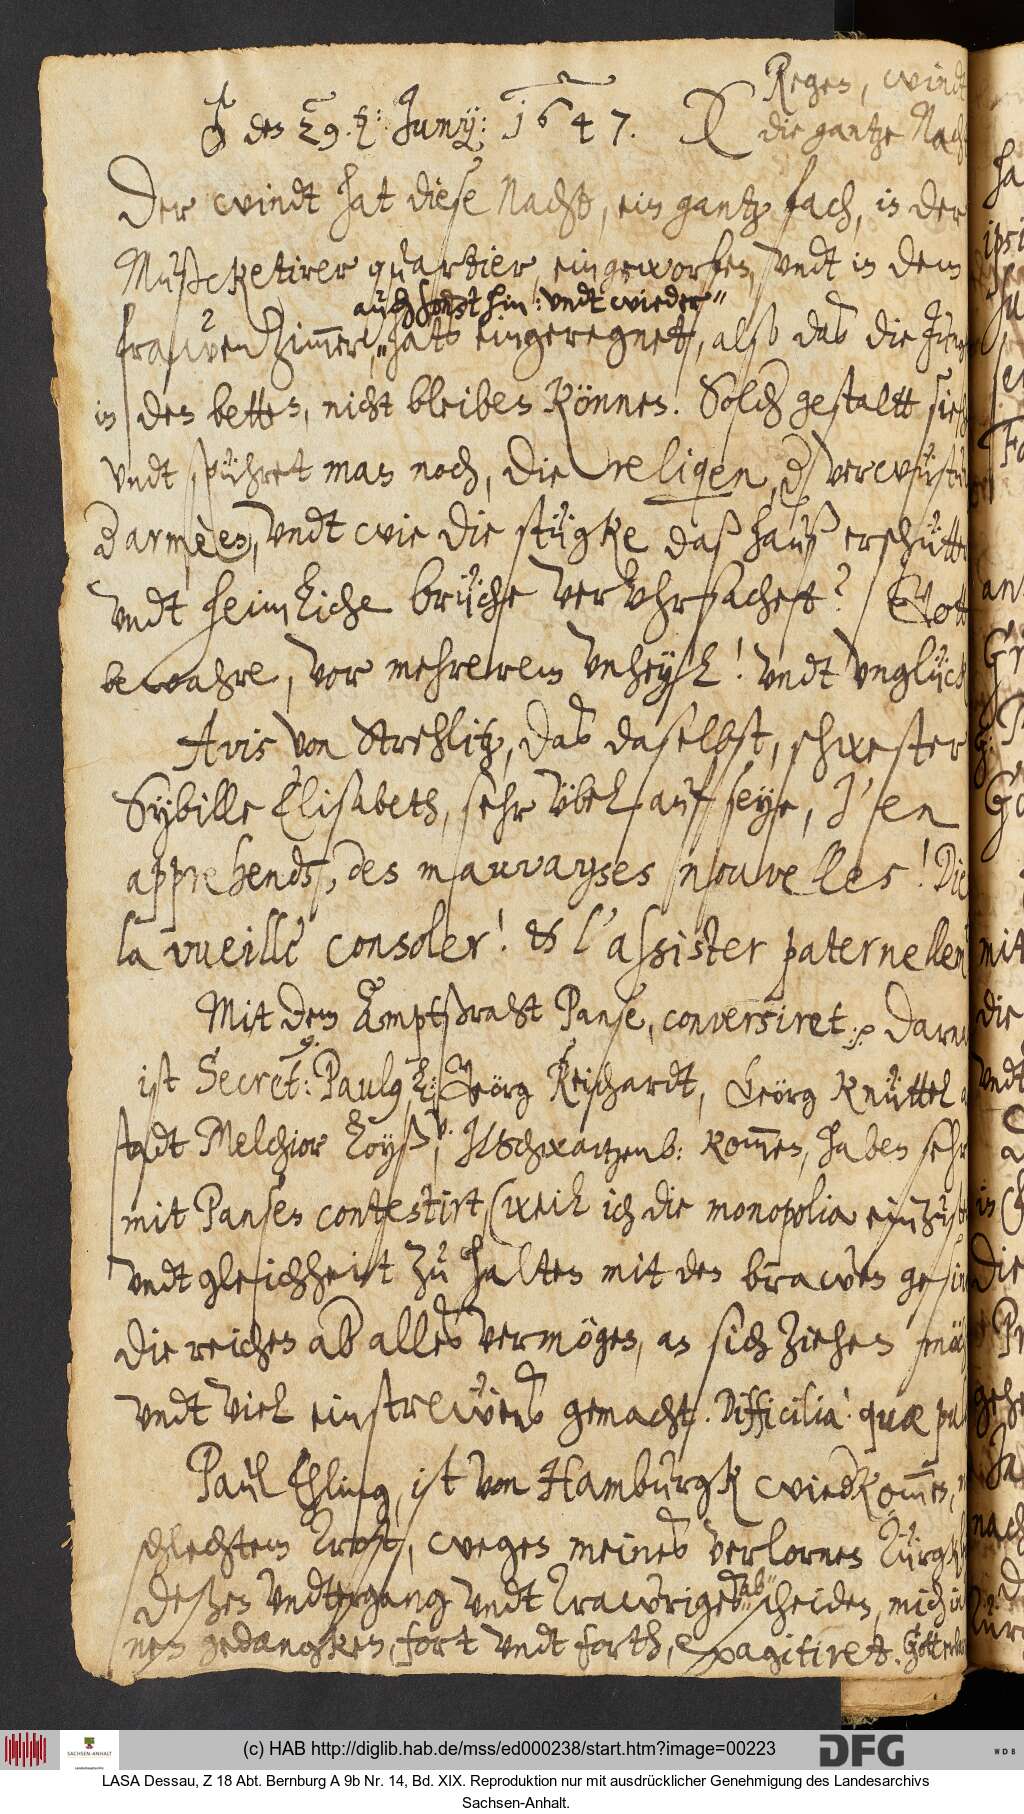 ♂ den 29. t: Junij: 1647. X Regen, windt
die gantze Nacht
Der windt hat diese Nacht, ein gantz fach, in der
Mußcketirer quartier eingeworfen, undt in dem
auch sonst hin: undt wieder"
frawenZimmer, "hats eingeregnet, also das die
in den betten, nicht bleiben können. Solch gestaltt sieht
undt spühret man noch, die reliqen, d verwüstu
d armèen, undt wie die stügke daß hauß erschütte
undt heimliche brüche verUhrsachet? Gott
bewahre, vor mehrerem unheyl! undt unglück
Avis von Strehlitz, das daselbst, schwester
Sybille Elisabeth, sehr übel auf seye, J'en
apprehende, des mauvayses nouvelles! Die
la vueille consoler! et l'assister paternellem
Mit dem Amptßraht Panse, conversiret. Darna
ist Secret: Paulj t: Geörg Reichardt, Geörg Knüttel
stadt Melchior Loyß, v. Schwartzenb: kommen, haben sehr
mit Pansen contestirt, (weil ich die monopolia
undt gleichheit zu halten mit den brawen
die reichen ab alles vermögen, an sich ziehen
undt viel einstrewens gemacht. Difficilia! quæ
Paul Ehling, ist von Hamburgk wiedkommen,
schlechtem Trost, wegen meines verlornen Türgk
deßen Undtergang undt Trawriges "ab" scheiden, mich
nen gedangken, fort undt forth, exagitiret. Gott
(c) HAB http://diglib.hab.de/mss/ed000238/start.htm?image=00223
SACHSEN-ANHALT
DFG
WDB
LASA Dessau, Z 18 Abt. Bernburg A 9b Nr. 14, Bd. XIX. Reproduktion nur mit ausdrücklicher Genehmigung des Landesarchivs
Sachsen-Anhalt.